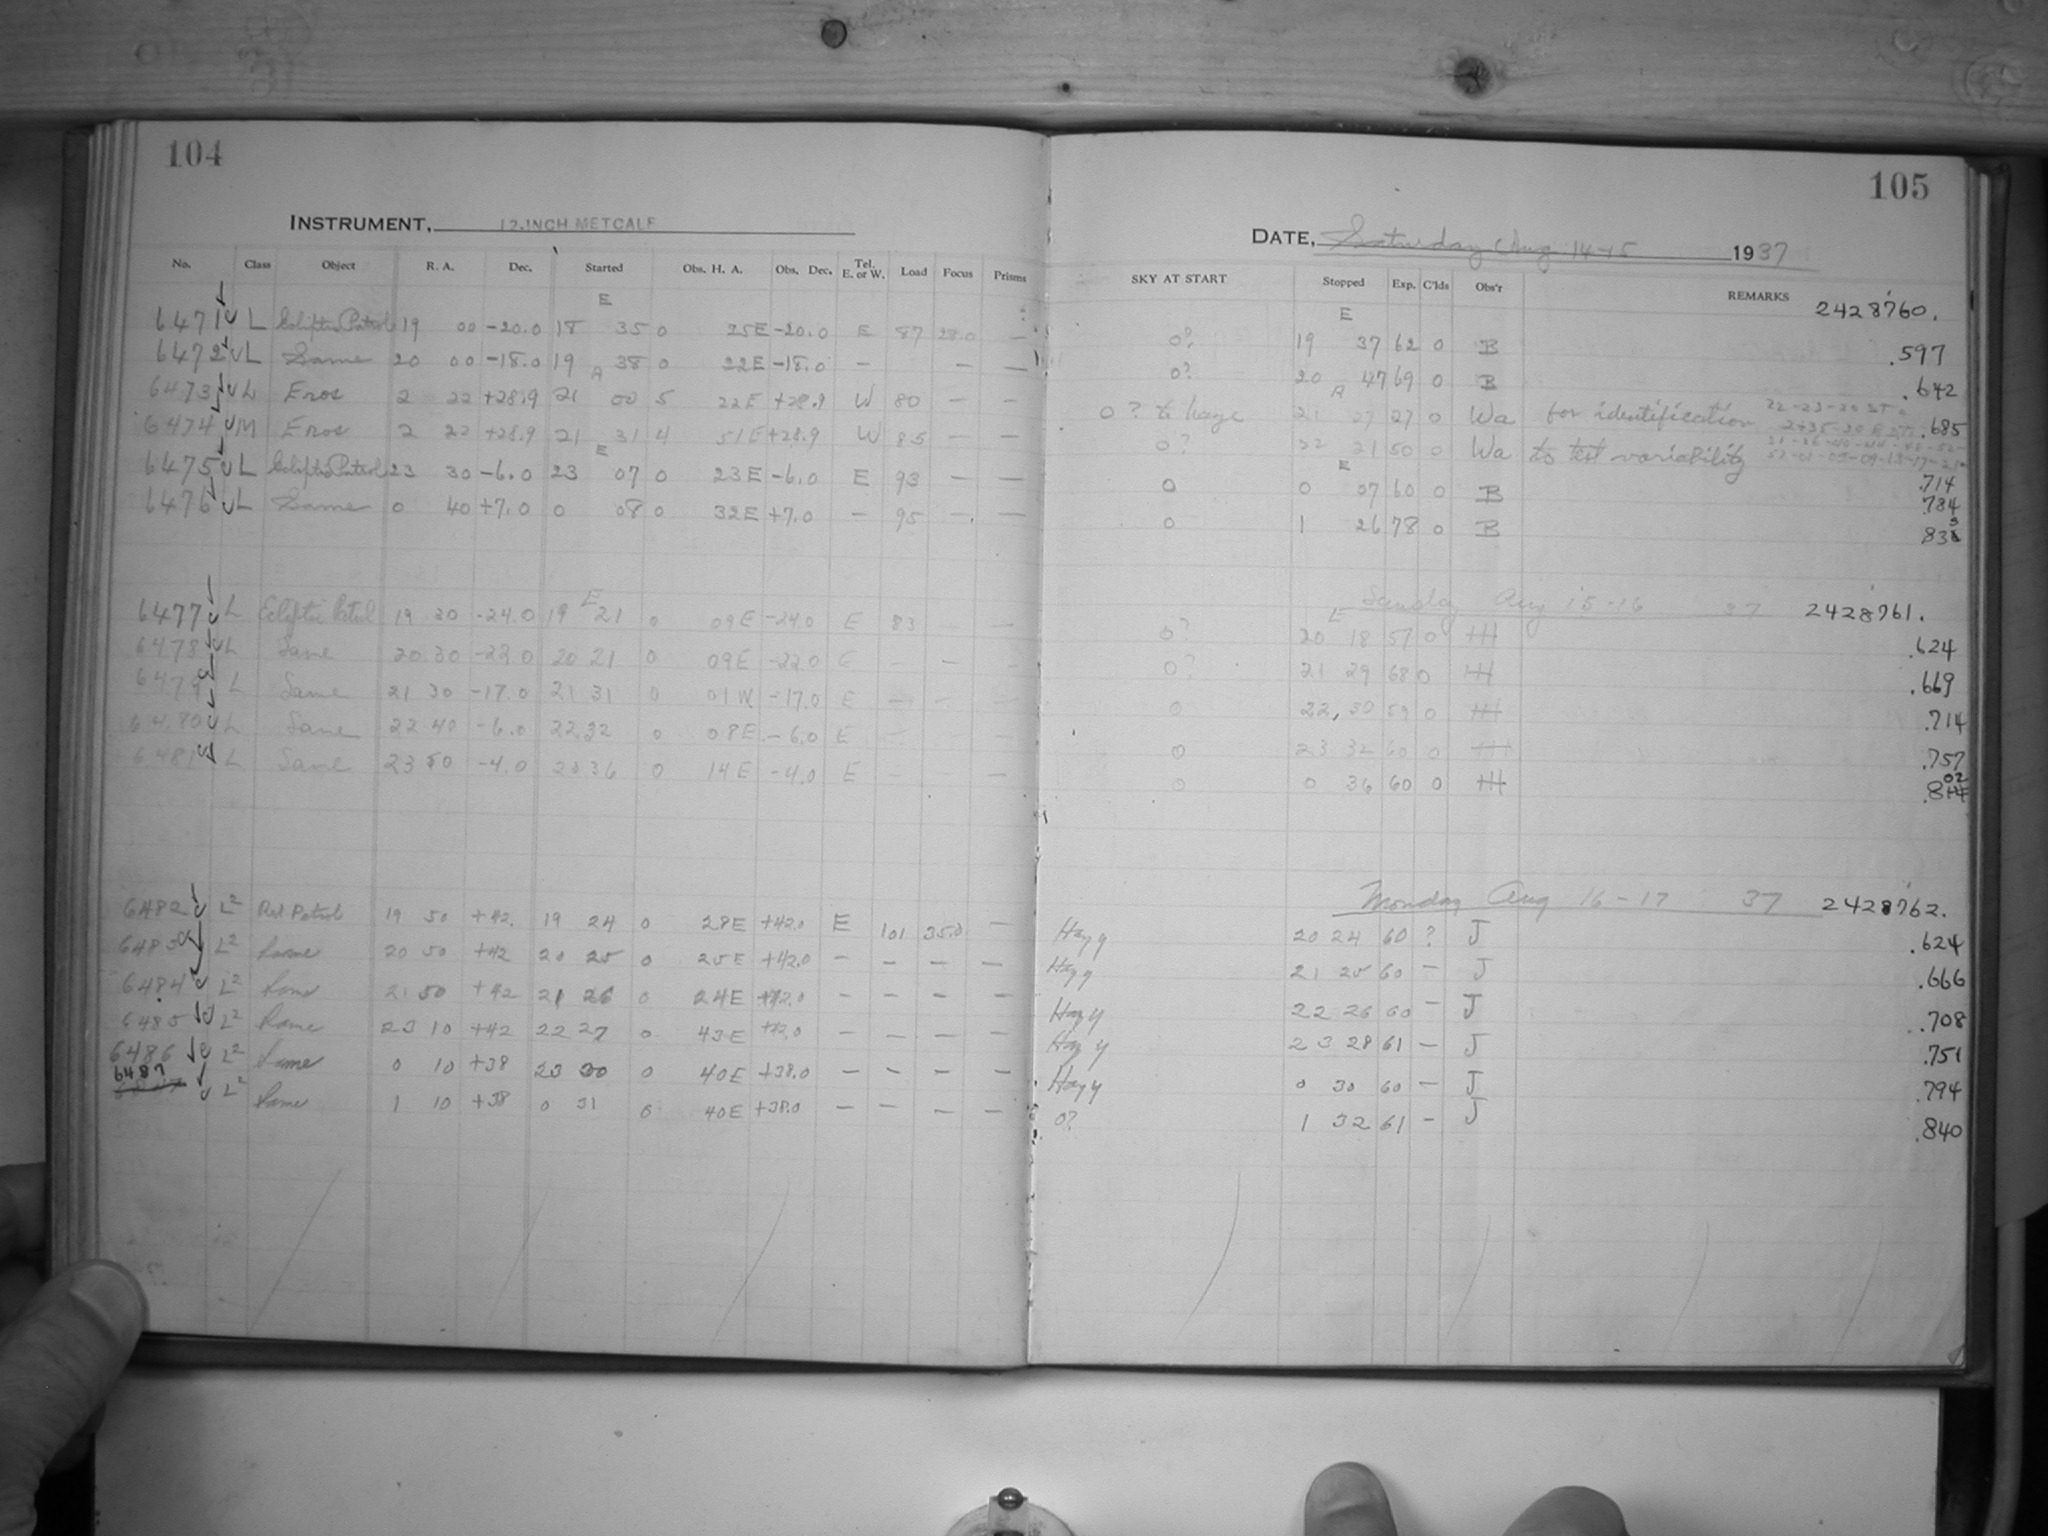 104
105
INSTRUMENT, 12-INCH METCALF
DATE, Saturday Aug 14-15 1937
No. Class Object R. A. Dec. Started Obs. H. A. Obs. Dec. Tel. E. or W. Load Focus Prisms SKY AT START Stopped Exp. C'lds Obs'r REMARKS 2428760.
E E
6471 L Ecliptic Patrol 19 00 -20.0 18 35 0 25E -20.0 E 87 28.0 — 0? 19 37 62 0 B .597
6472 L Same 20 00 -18.0 19 38 0 22E -18.0 — — — 0? 20 47 69 0 B .642
A A
6473 L Eros 2 22 +28.9 21 00 5 22E +28.9 W 80 — — 0? to haze 21 27 27 0 Wa for identification .685
6474 M Eros 2 22 +28.9 21 31 4 51E +28.9 W 85 — — 0? 22 21 50 0 Wa to test variability .714
E E
6475 L Ecliptic Patrol 23 30 -6.0 23 07 0 23E -6.0 E 93 — — 0 0 07 60 0 B .784
6476 L Same 0 40 +7.0 0 08 0 32E +7.0 — 95 — — 0 1 26 78 0 B 833
Sunday Aug 15-16 37 2428761.
E E
6477 L Ecliptic Patrol 19 30 -24.0 19 21 0 09E -24.0 E 83 — — 0? 20 18 57 0 HH .624
6478 L Same 20 30 -22.0 20 21 0 09E -22.0 E — — — 0? 21 29 68 0 HH .669
6479 L Same 21 30 -17.0 21 31 0 01W -17.0 E — — — 0 22 30 59 0 HH .714
6480 L Same 22 40 -6.0 22 32 0 08E -6.0 E — — — 0 23 32 60 0 HH .757
6481 L Same 23 50 -4.0 23 36 0 14E -4.0 E — — — 0 0 36 60 0 HH .802
Monday Aug 16-17 37 2428762.
6482 L² Ret Patrol 19 50 +42. 19 24 0 28E +42.0 E 101 35.0 — Hazy 20 24 60 ? J .624
6483 L² Same 20 50 +42 20 25 0 25E +42.0 — — — — Hazy 21 25 60 — J .666
6484 L² Same 21 50 +42 21 26 0 24E +42.0 — — — — Hazy 22 26 60 — J .708
6485 L² Same 23 10 +42 22 27 0 43E +42.0 — — — — Hazy 23 28 61 — J .751
6486 L² Same 0 10 +38 23 30 0 40E +38.0 — — — — Hazy 0 30 60 — J .794
6487 L² Same 1 10 +38 0 31 0 40E +38.0 — — — — 0? 1 32 61 — J .840